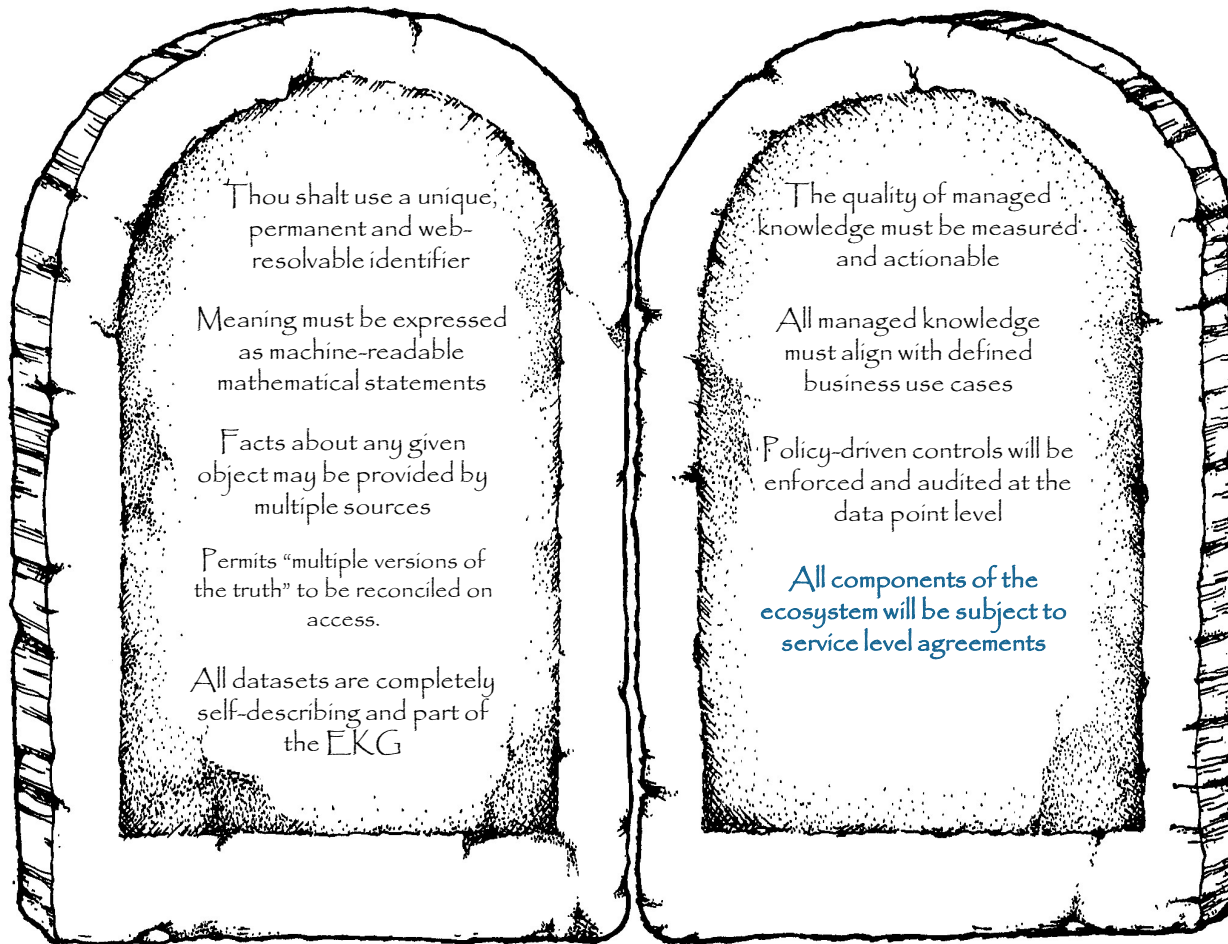 Thou shalt use a unique,
permanent and web-
resolvable identifier
Meaning must be expressed
as machine-readable
mathematical statements
Facts about any given
object may be provided by
multiple sources
Permits “multiple versions of
the truth” to be reconciled on
access.
All datasets are completely
self-describing and part of
the EKG
The quality of managed
knowledge must be measured
and actionable
All managed knowledge
must align with defined
business use cases
Policy-driven controls will be
enforced and audited at the
data point level
All components of the
ecosystem will be subject to
service level agreements